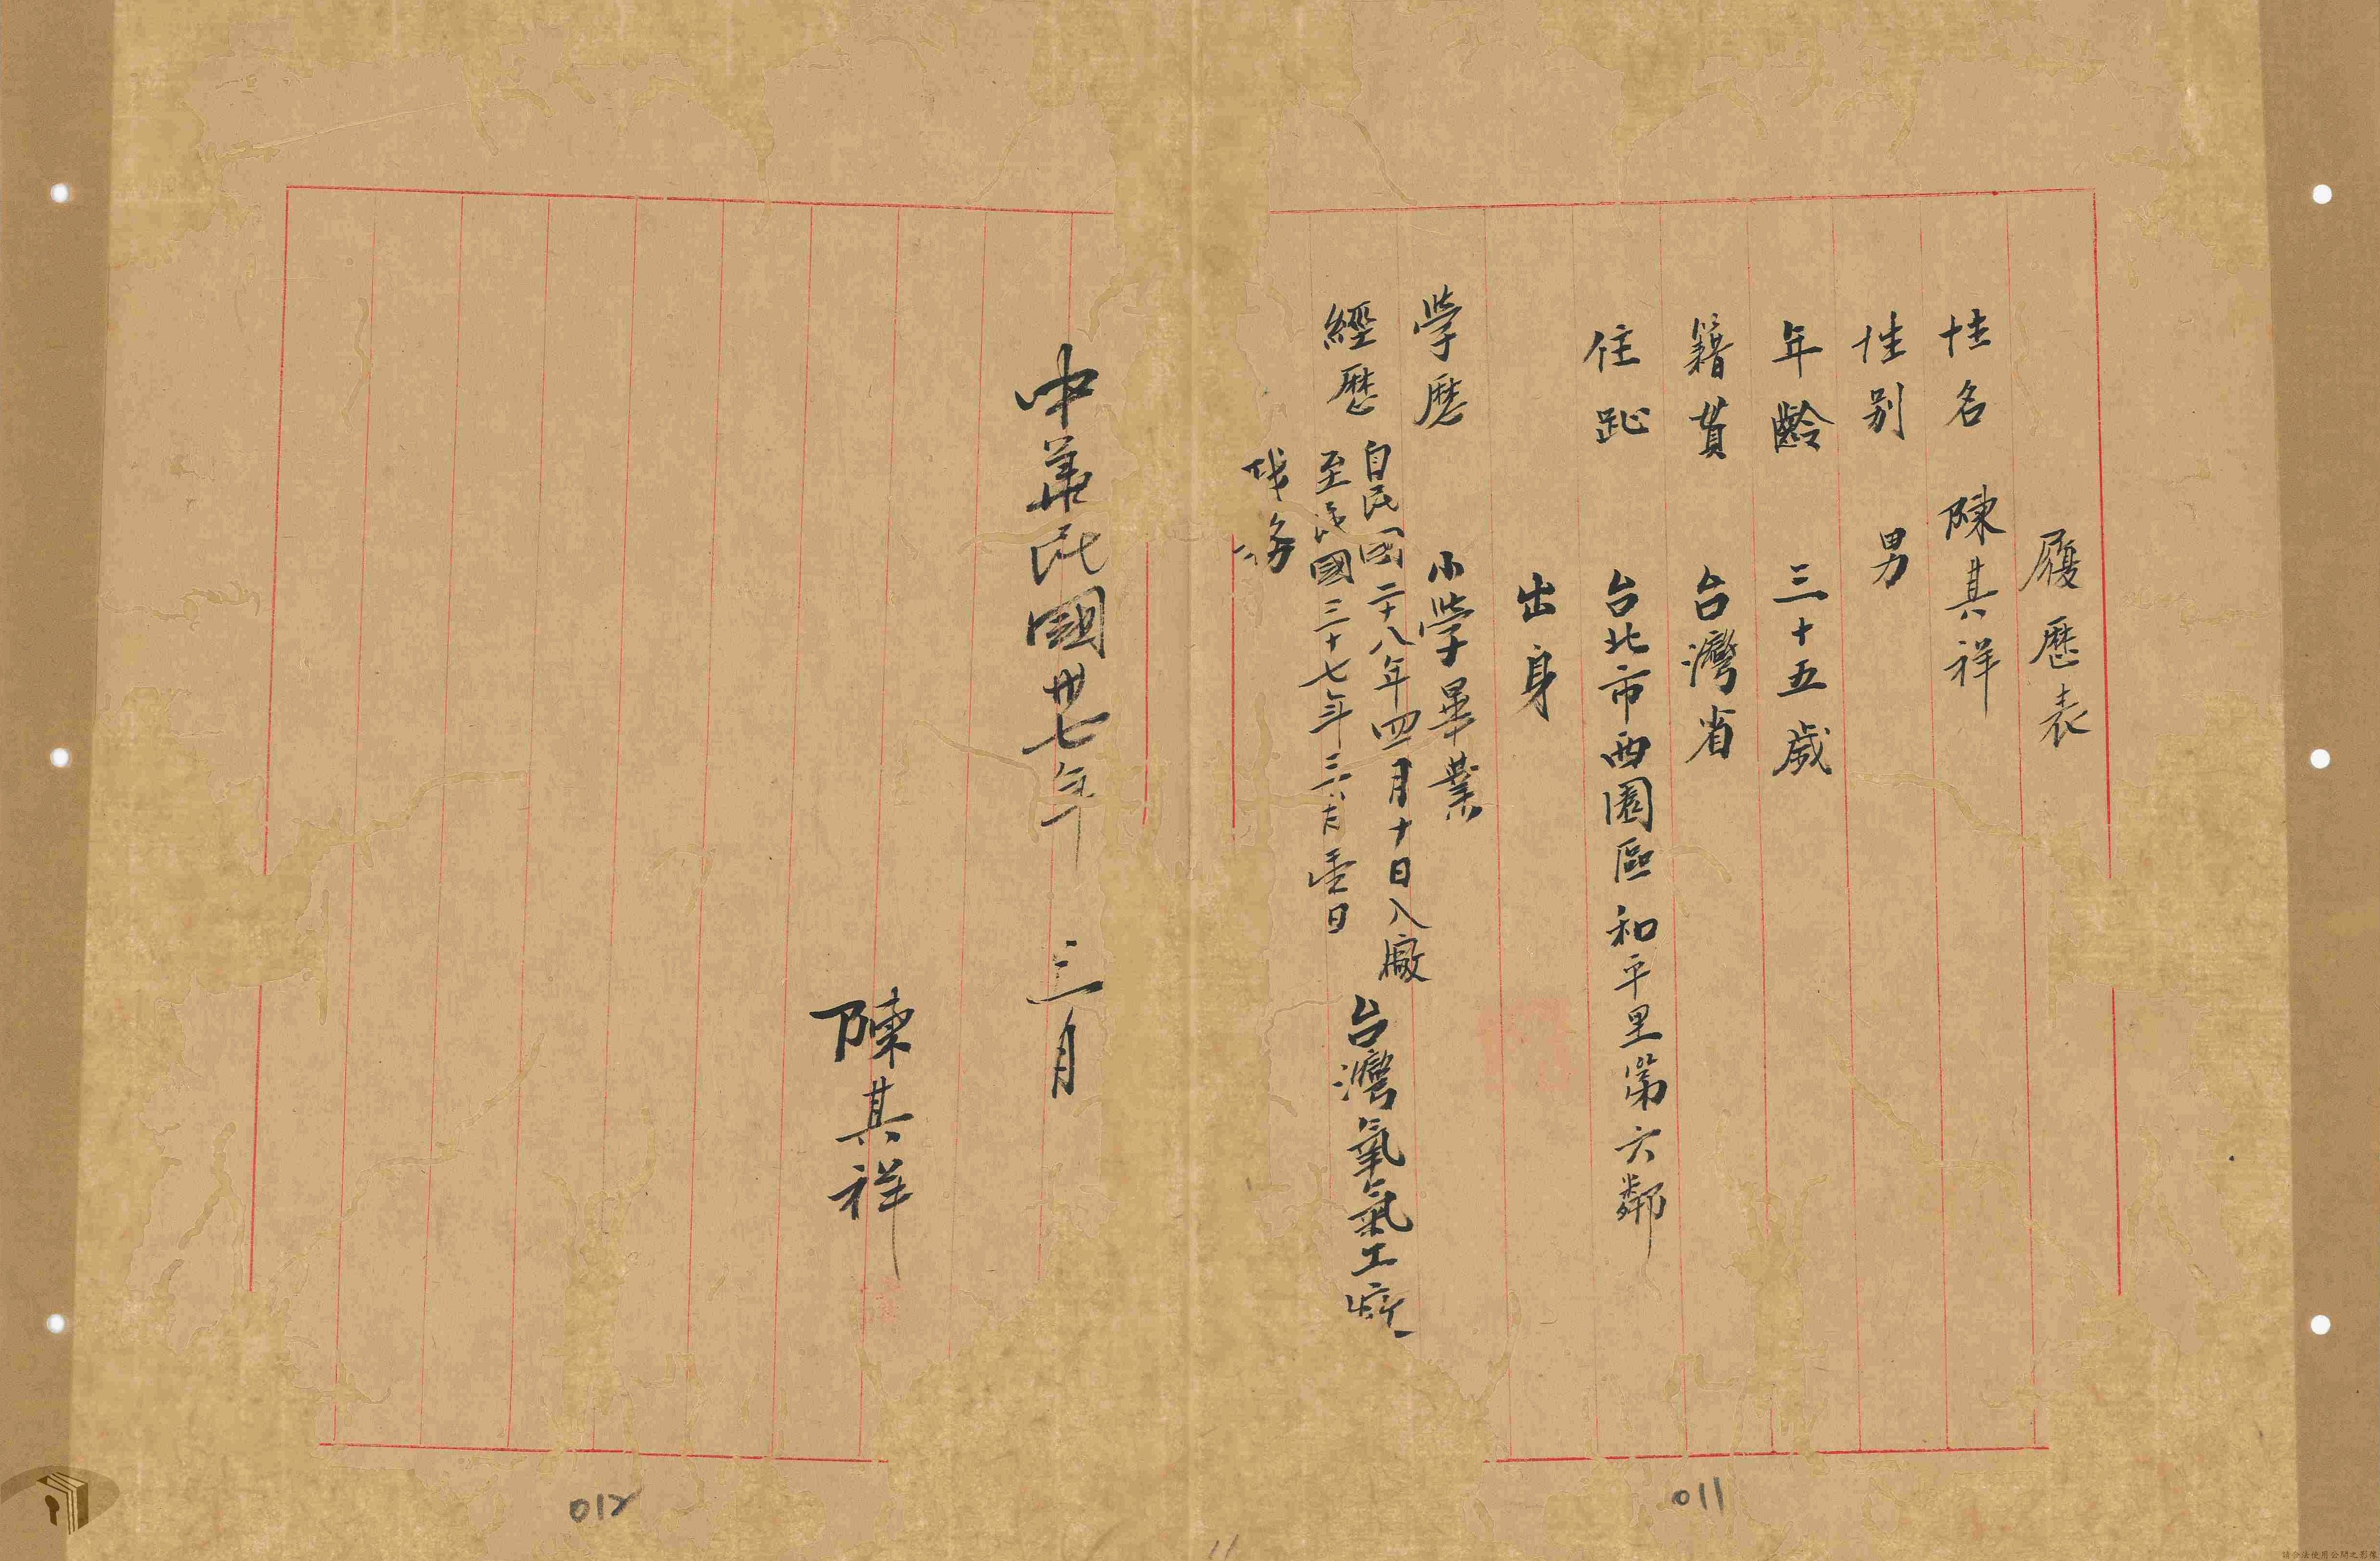 履歷表
性名 陳其祥
性別 男
年齡 三十五歲
籍貫 台灣省
住趾 台北市西園區和平里第六鄰
出身
學歷 小學畢業
經歷 自民國二十八年四月十日入廠
至民國三十七年三月壹日
台灣氧氣工廠
職務
中華民國卅七年 三月
陳其祥
011
012
11